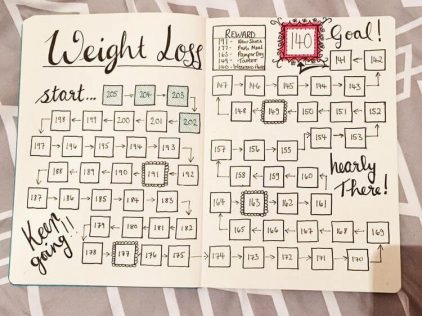 Weight Loss
start... 205 204 203
198 199 200 201 202
197 196 195 194 193
188 189 190 191 192
187 186 185 184 183
Keep
going!!
179 180 181 182
178 177 176 175
REWARD
191 - New Shoes
177 - Posh Meal
163 - Pamper Day
149 - Tattoo
140 - Weekend Away
140 Goal!
141 142
147 146 145 144 143
148 149 150 151 152
154 153
157 156 155
nearly
There!
158 159 160
164 163 162 161
165 166 167 168 169
174 173 172 171 170